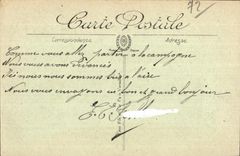 72
Carte Postale
Correspondance Adresse
Comme vous allez partir à la campagne
Nous vous avons devancés
Ici nous nous sommes très à l'aise
Nous vous envoyons un bon et grand bonjour